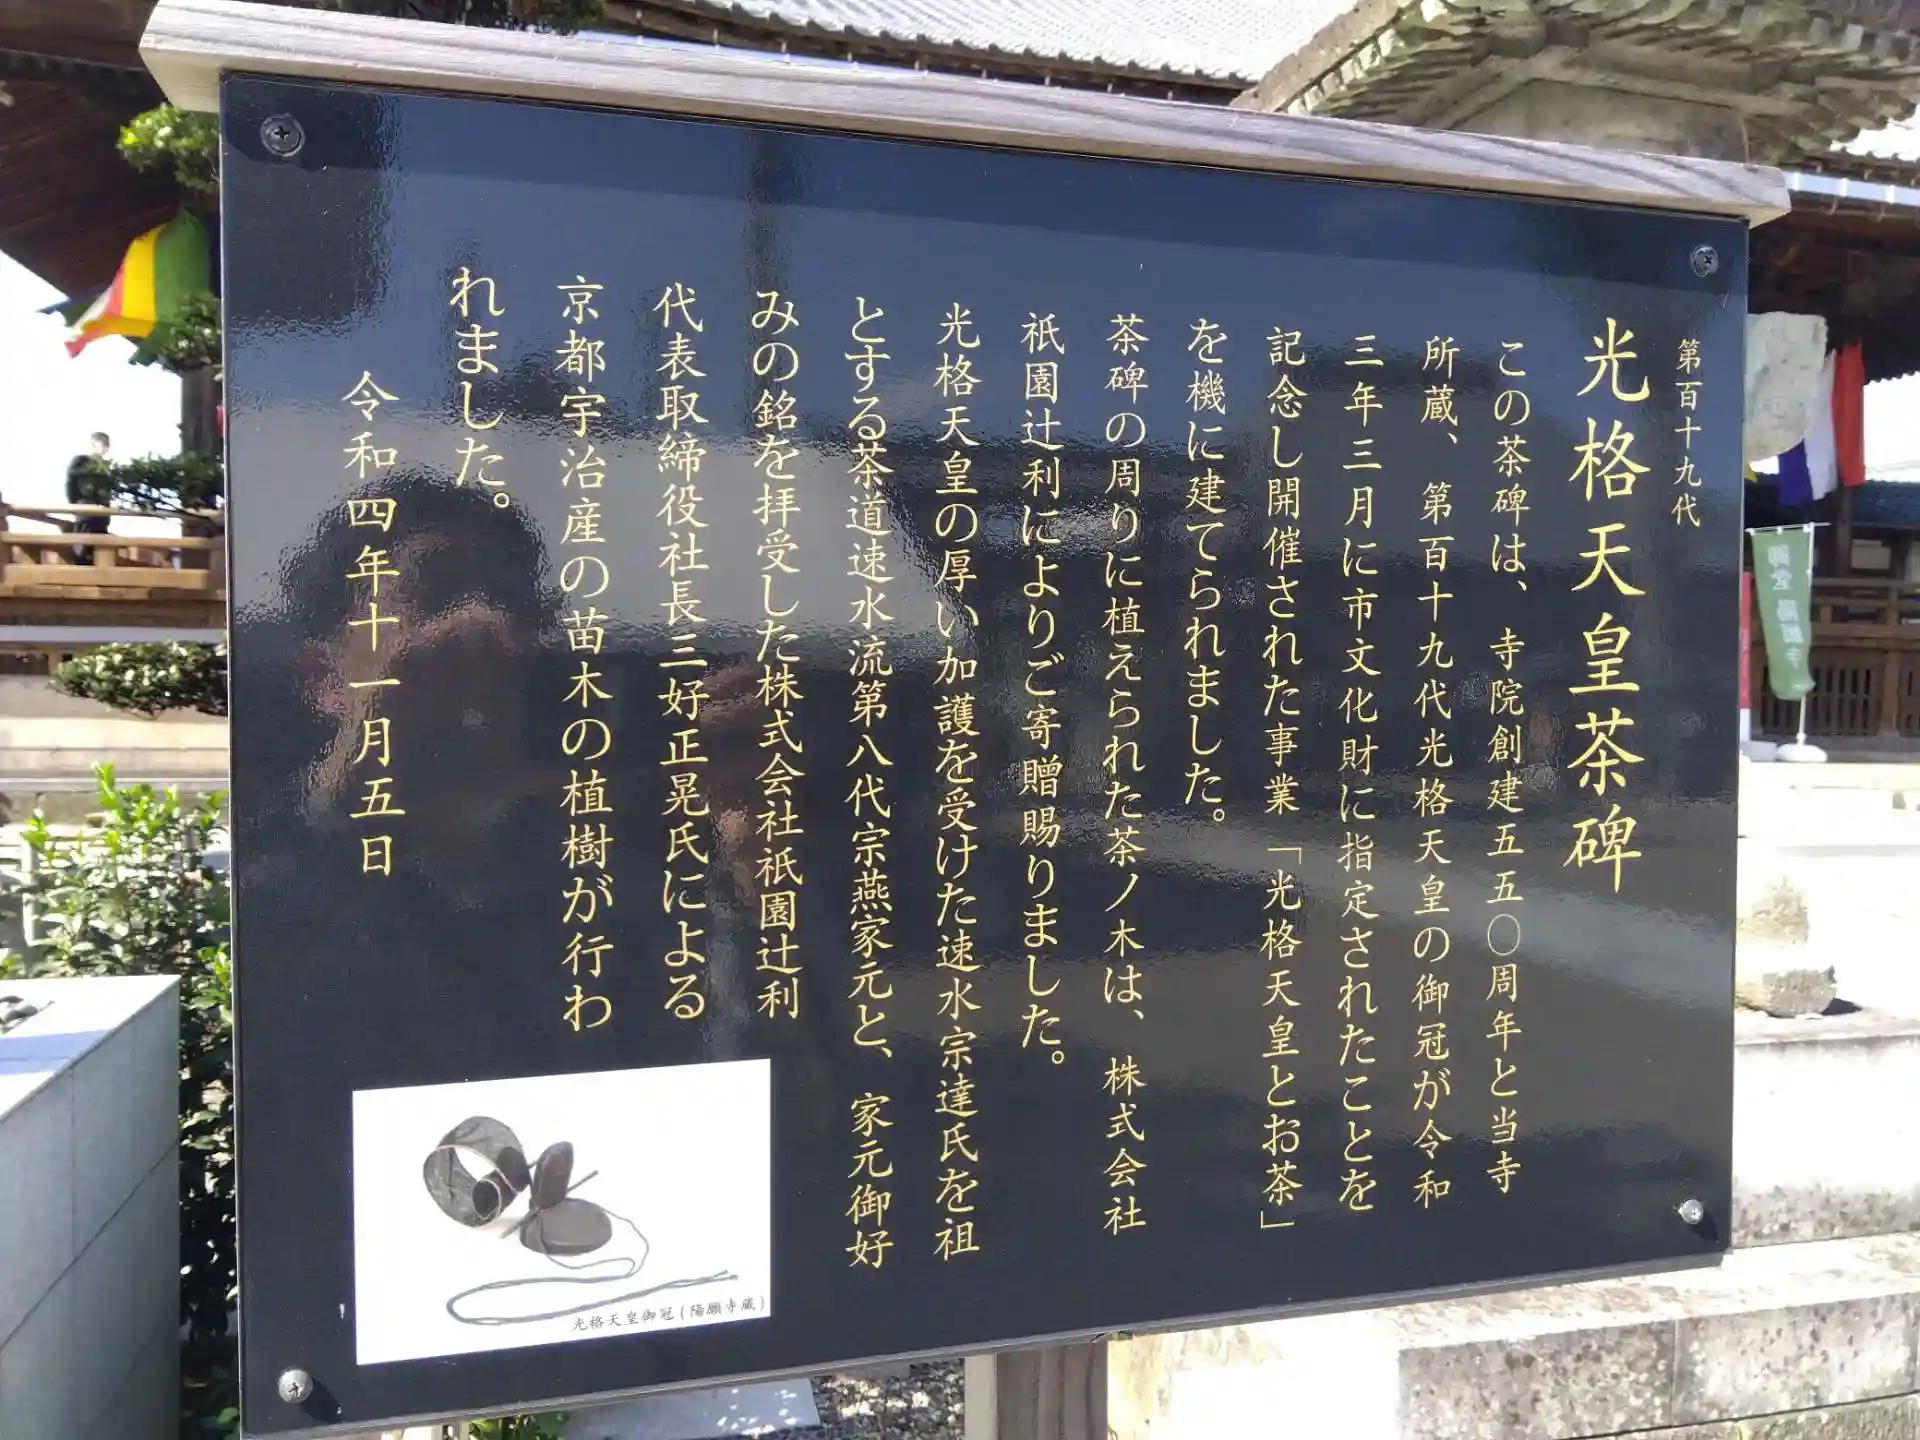 第百十九代
光格天皇茶碑
この茶碑は、寺院創建五五〇周年と当寺
所蔵、第百十九代光格天皇の御冠が令和
三年三月に市文化財に指定されたことを
記念し開催された事業「光格天皇とお茶」
を機に建てられました。
茶碑の周りに植えられた茶ノ木は、株式会社
祇園辻利によりご寄贈賜りました。
光格天皇の厚い加護を受けた速水宗達氏を祖
とする茶道速水流第八代宗燕家元と、家元御好
みの銘を拝受した株式会社祇園辻利
代表取締役社長三好正晃氏による
京都宇治産の苗木の植樹が行わ
れました。
令和四年十一月五日
光格天皇御冠(陽願寺蔵)